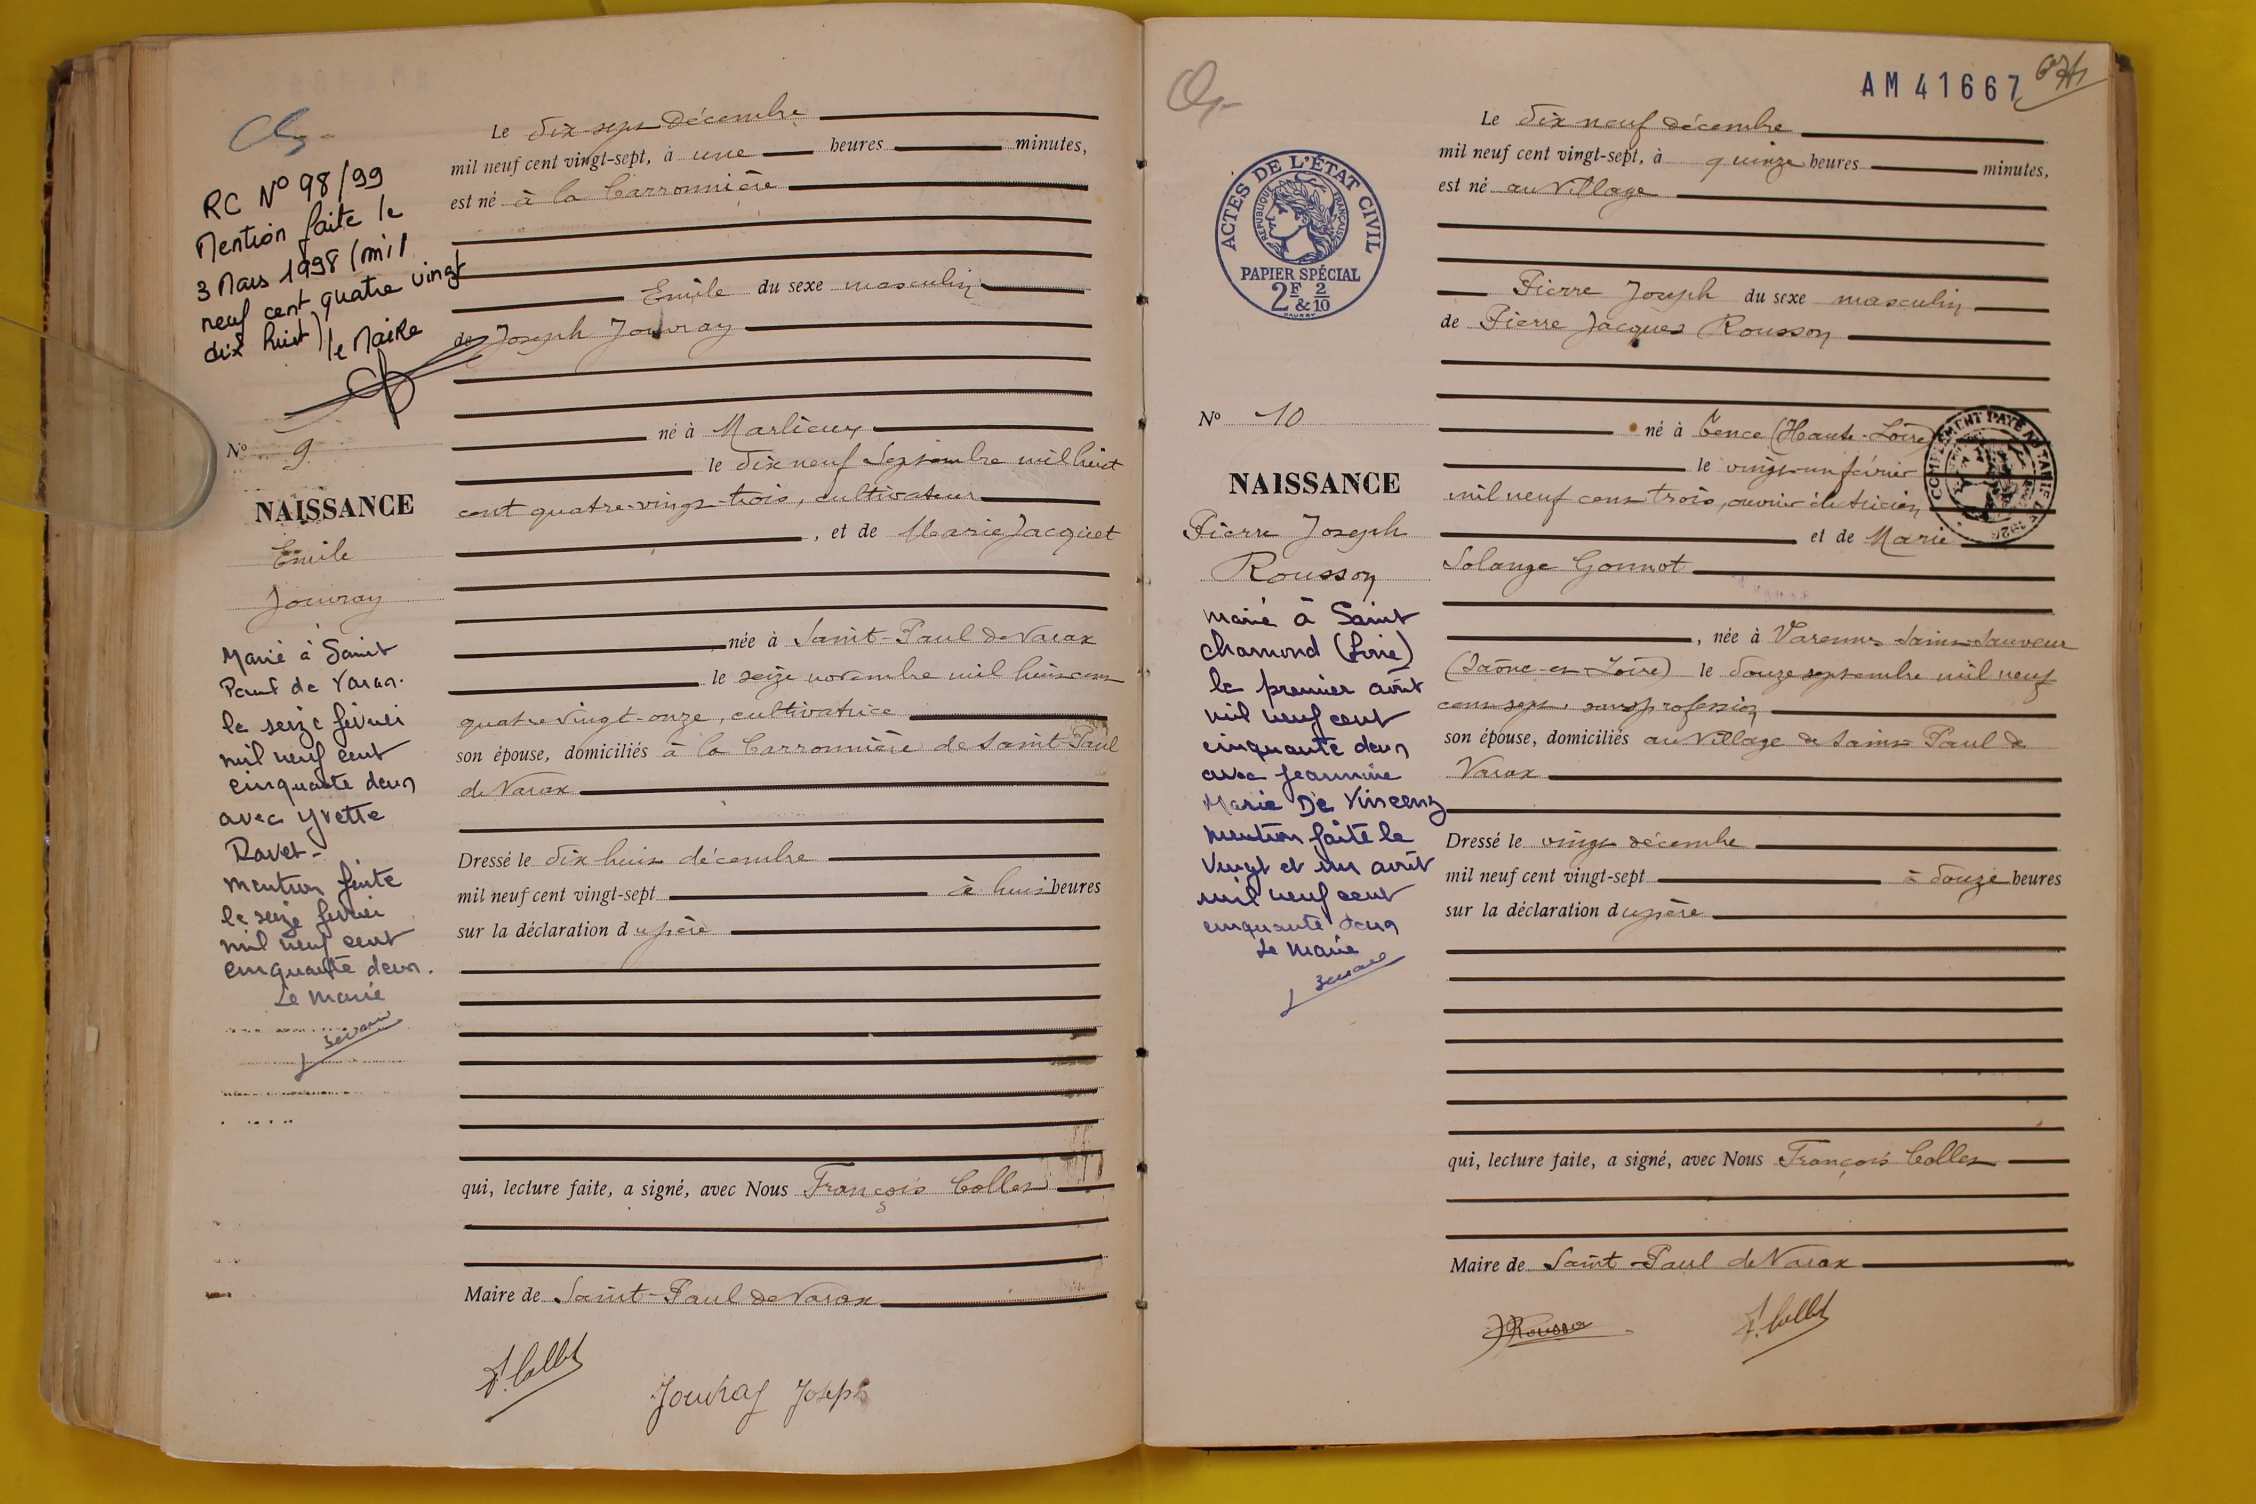 RC N° 98/99
Mention faite le
3 Mars 1998 (mil
neuf cent quatre vingt
dix huit) le Maire
N° 9
NAISSANCE
Emile
Jouvray
Marié à Saint
Paul de Varax
le seize février
mil neuf cent
cinquante deux
avec Yvette
Ravet-
mention faite
le seize février
mil neuf cent
cinquante deux.
Le Maire
Le dix-sept décembre
mil neuf cent vingt-sept, à une heures minutes,
est né à la Carronnière
Emile du sexe masculin
de Joseph Jouvray
né à Marlieux
le dix neuf Septembre mil huit
cent quatre-vingt-trois, cultivateur
, et de Marie Jacquet
née à Saint-Paul de Varax
le seize novembre mil huit cent
quatre vingt-onze, cultivatrice
son épouse, domiciliés à la Carronnière de Saint-Paul
de Varax
Dressé le dix huit décembre
mil neuf cent vingt-sept à huit heures
sur la déclaration du père
qui, lecture faite, a signé, avec Nous François Collet
Maire de Saint-Paul de Varax
F. Collet
Jouvray Joseph
AM 41667
ACTES DE L'ÉTAT CIVIL
RÉPUBLIQUE FRANÇAISE
PAPIER SPÉCIAL
2F & 2/10
N° 10
NAISSANCE
Pierre Joseph
Rousson
marié à Saint
Chamond (Loire)
le premier août
mil neuf cent
cinquante deux
avec Jeannine
Marie De Vincenz
mention faite le
vingt et un août
mil neuf cent
cinquante deux
Le Maire
Le dix neuf décembre
mil neuf cent vingt-sept, à quinze heures minutes,
est né au Village
Pierre Joseph du sexe masculin
de Pierre Jacques Rousson
né à Tence (Haute-Loire)
le vingt-un février
mil neuf cent trois, ouvrier électricien
et de Marie
Solange Gonnot
, née à Varennes Saint-Sauveur
(Saône-et-Loire) le douze septembre mil neuf
cent sept, sans profession
son épouse, domiciliés au Village de Saint Paul de
Varax
Dressé le vingt décembre
mil neuf cent vingt-sept à douze heures
sur la déclaration du père
qui, lecture faite, a signé, avec Nous François Collet
Maire de Saint-Paul de Varax
Rousson
F. Collet